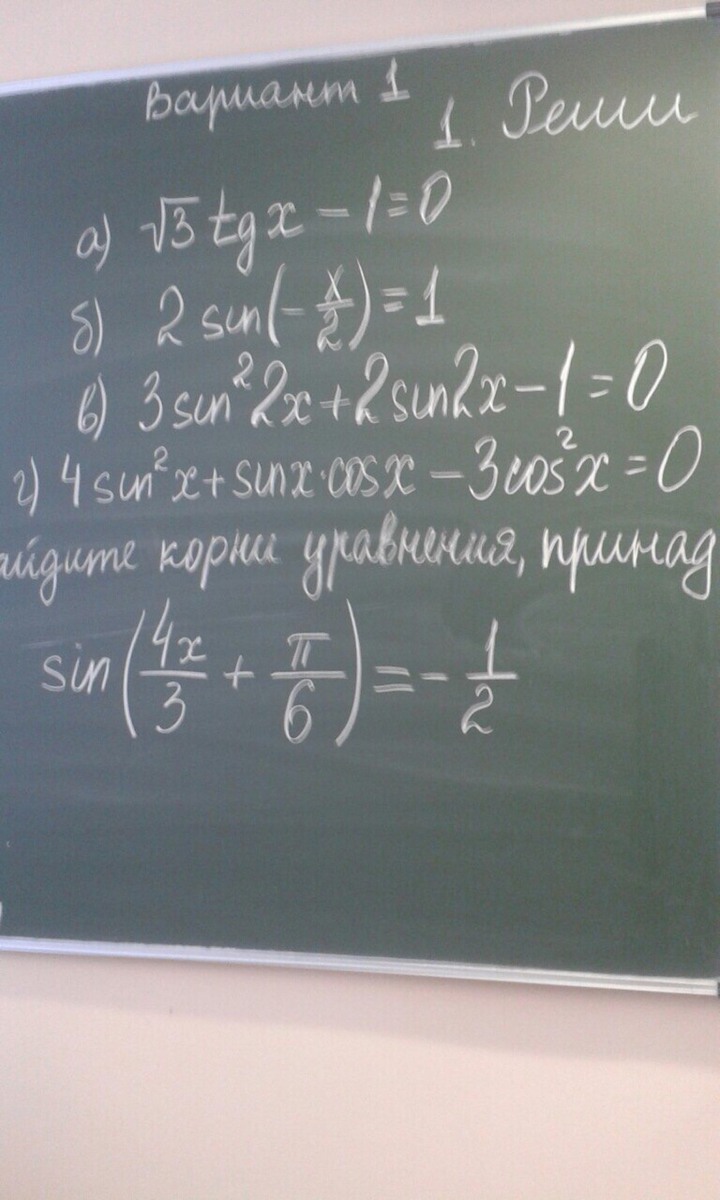 Вариант 1
1. Реши
а) √3 tgx - 1 = 0
б) 2 sin(-x/2) = 1
в) 3 sin²2x + 2 sin2x - 1 = 0
г) 4 sin²x + sinx·cosx - 3cos²x = 0
айдите корни уравнения, принад
sin(4x/3 + π/6) = - 1/2